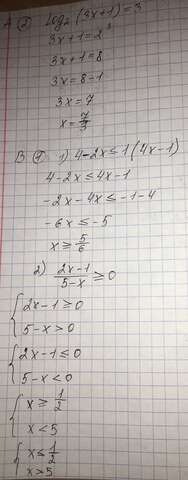 A ② log₂(3x+1)=3
3x+1=2³
3x+1=8
3x=8-1
3x=7
x=7/3
B ① 1) 4-2x≤1(4x-1)
4-2x≤4x-1
-2x-4x≤-1-4
-6x≤-5
x≥5/6
2) (2x-1)/(5-x)≥0
{2x-1≥0
5-x>0
{2x-1≤0
5-x<0
{x≥1/2
x<5
{x≤1/2
x>5